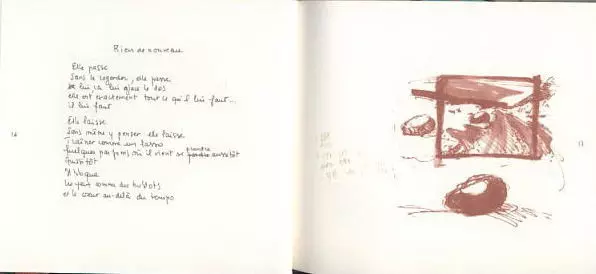 Rien de nouveau
Elle passe
Sans le regarder, elle passe
De lui ça lui glace le dos
elle est exactement tout ce qu'il lui faut...
il lui faut
Elle laisse
Sans même y penser elle laisse
Traîner comme un lasso
quelques parfums où il vient se prendre aussitôt
Aussitôt
Il vogue
Les yeux comme des hublots
et le cœur au-delà du tempo
16
17